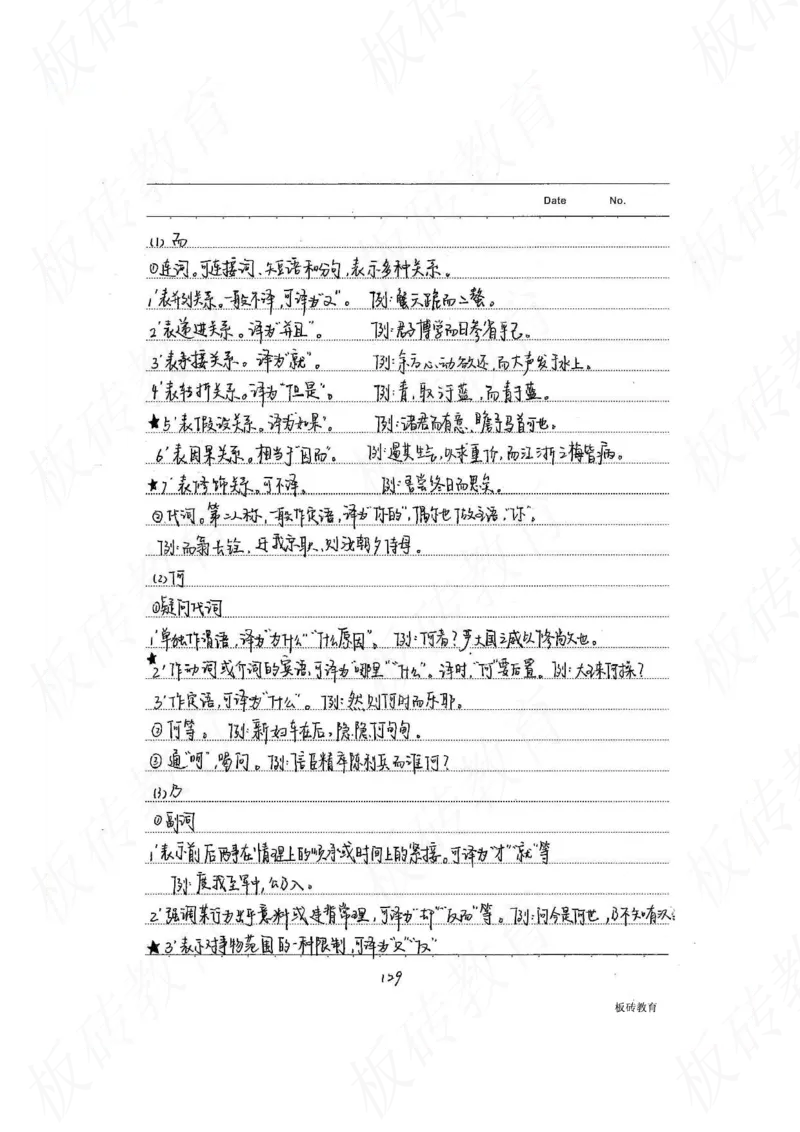 Date No.
(1) 而
①连词。可连接词、短语和分句,表示多种关系。
1'表并列关系。一般不译,可译为"又"。 例:蟹六跪而二螯。
2'表递进关系。译为"并且"。 例:君子博学而日参省乎己。
3'表承接关系。译为"就"。 例:余方心动欲还,而大声发于水上。
4'表转折关系。译为"但是"。 例:青,取于蓝,而青于蓝。
★5'表假设关系。译为"如果"。 例:诸君而有意,瞻予马首可也。
6'表因果关系。相当于"因而"。 例:遏其生气,以求重价,而江浙之梅皆病。
★7'表修饰关系。可不译。 例:吾尝终日而思矣。
②代词。第二人称,一般作定语,译为"你的",偶尔也做主语,"你"。
例:而翁长铨,迁我京职,则汝朝夕侍母。
(2)何
①疑问代词
1'单独作谓语,译为"为什么""什么原因"。 例:何者?严大国之威以修敬也。
★2'作动词或介词的宾语,可译为"哪里""什么"。译时,"何"要后置。例:大王来何操?
3'作定语,可译为"什么"。例:然则何时而乐耶。
②何等。 例:新妇车在后,隐隐何甸甸。
③通"呵",喝问。例:信臣精卒陈利兵而谁何?
(3)乃
①副词
1'表示前后两事在情理上的顺承或时间上的紧接。可译为"才""就"等
例:度我至军中,公乃入。
2'强调某行为出乎意料或违背常理,可译为"却""反而"等。例:问今是何世,乃不知有汉
★3'表示对事物范围的一种限制,可译为"又""仅"
129
板砖教育